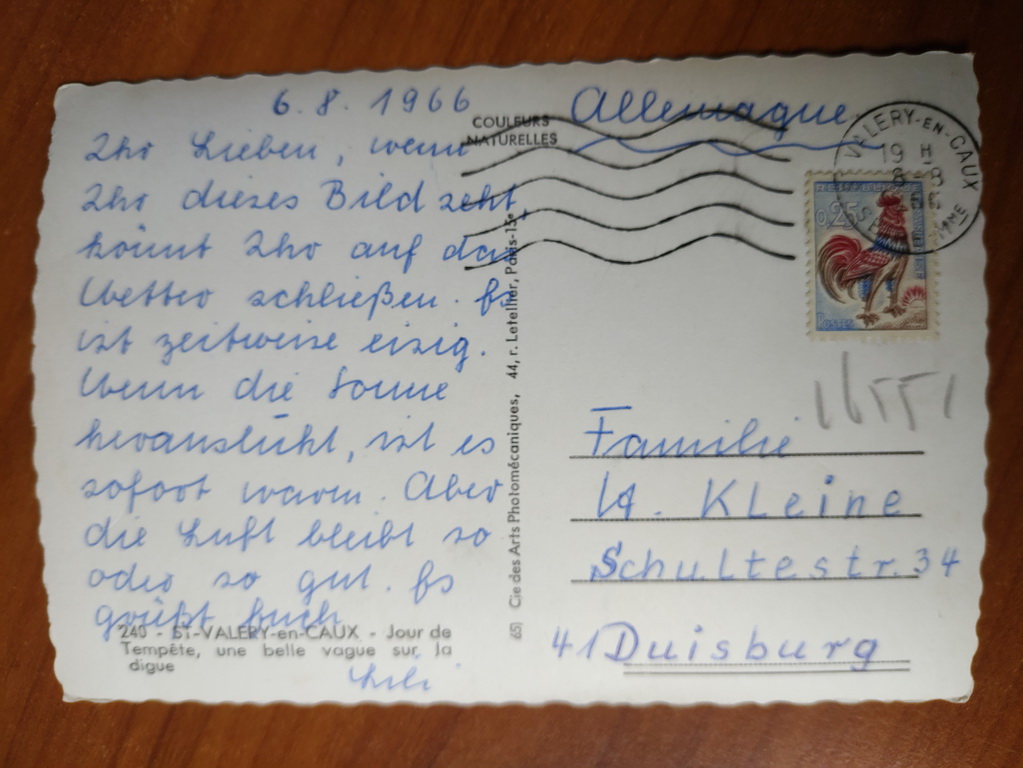 6. 8. 1966
Ihr Lieben, wenn
Ihr dieses Bild seht,
könnt Ihr auf das
Wetter schließen. Es
ist zeitweise eisig.
Wenn die Sonne
herauslücht, ist es
sofort warm. Aber
die Luft bleibt so
oder so gut. Es
grüßt Euch
Lili
240 - ST-VALERY-en-CAUX - Jour de
Tempête, une belle vague sur la
digue
COULEURS
NATURELLES
651 Cie des Arts Photomécaniques, 44, r. Letellier, Paris-15e
Allemagne
VALERY-EN-CAUX
19 H
8-8
0,25
POSTES
Familie
W. Kleine
Schultestr. 34
41 Duisburg